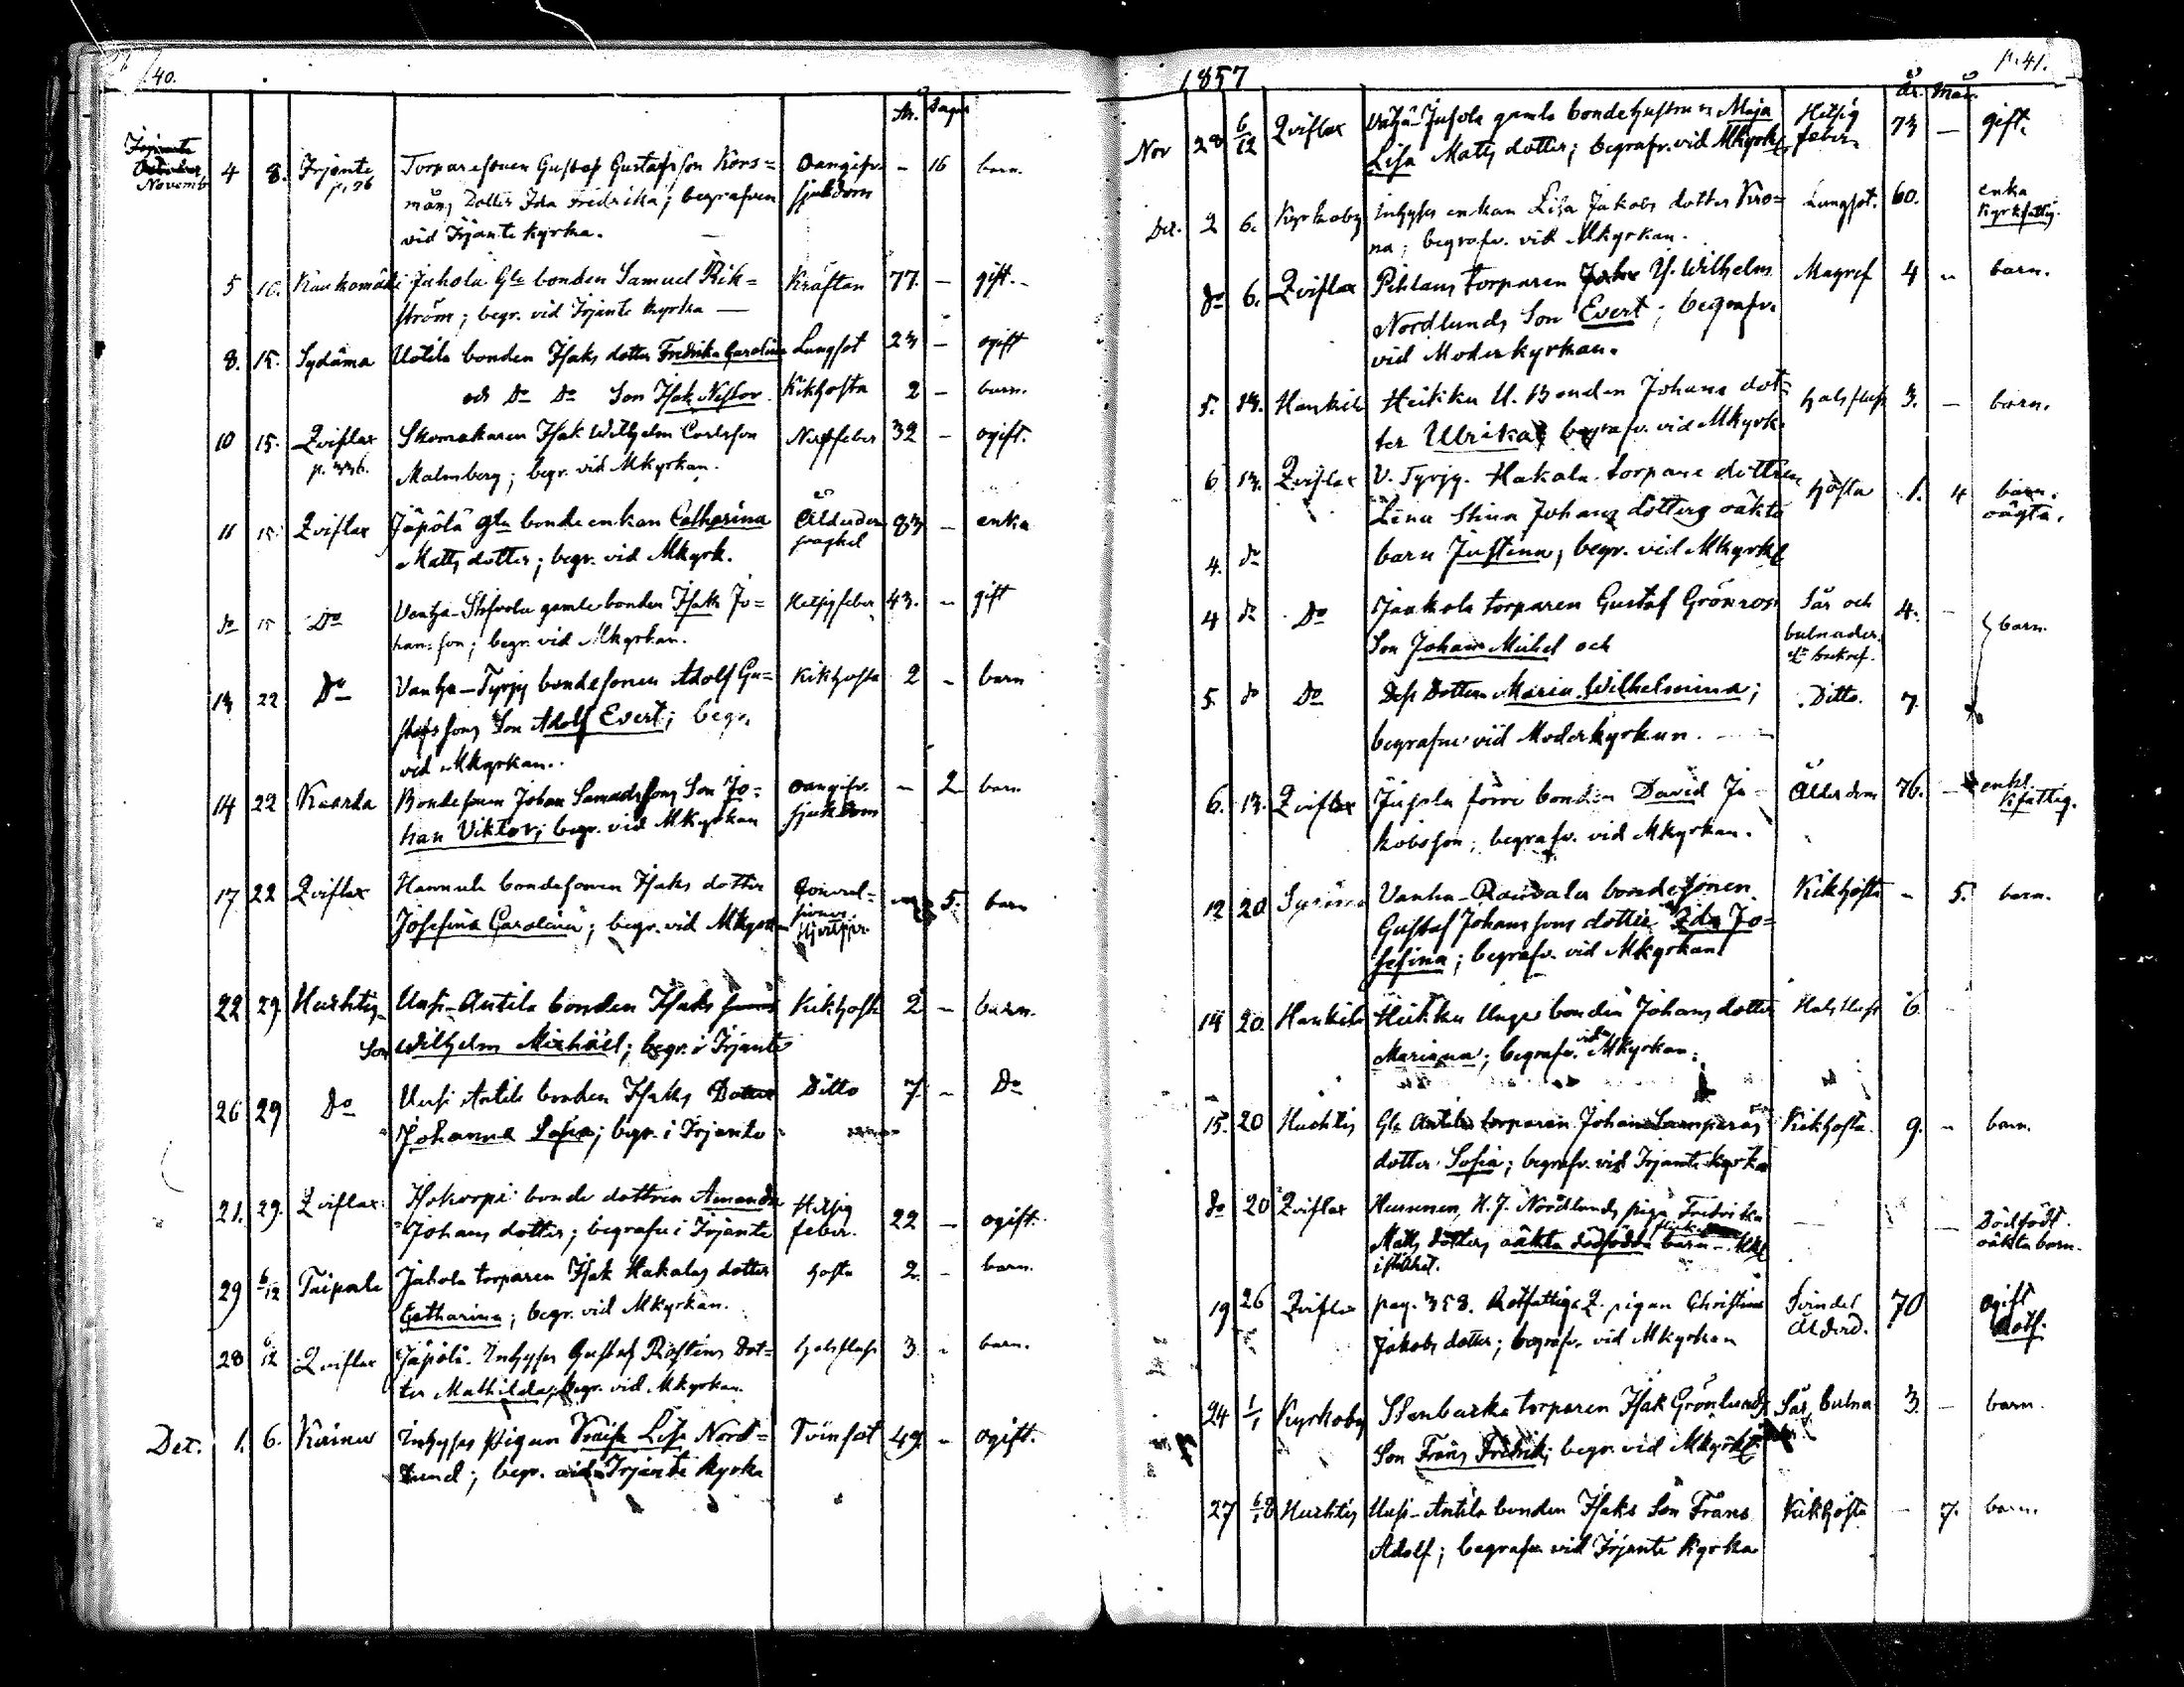 40.
År. Dagar
Novemb 4 8. Irjante Torparesonen Gustaf Gustafsson Kors= Oangifv. - 16 barn.
p. 76 mans Dotter Ida Fredrika; begrafven sjukdom
vid Irjante kyrka.
5 10. Kaukomäki Juhola Gla bonden Samuel Rik= Kräftan 77. - gift.
ström; begr. vid Irjante kyrka
8. 15. Sydäma Uotila bonden Isaks dotter Fredrika Carolina Lungsot 23 - ogift
och Do Do Son Isak Nestor Kikhosta 2 - barn.
10 15. Qviflax Skomakaren Isak Wilhelm Carlsson Nervfeber 32 - ogift.
Malmberg; begr. vid Mkyrkan.
11 15 Qviflax Jäpölä gla bondeenkan Catharina Ålderdoms 83 - enka
Matts dotter; begr. vid Mkyrk.
do 15 Do gamle bonden Isak Jo= Hetsigfeber 43. - gift
han:son; begr. vid Mkyrkan.
13 22 Do Vanha-Tyrjy bondesonen Adolf Gu= Kikhosta 2 - barn
stafssons Son Adolf Evert; begr.
vid Mkyrkan.
14 22 Kaarla Bondesonen Johan Samuelssons Son Jo= Oangifv. - 2 barn
han Viktor; begr. vid Mkyrkan sjukdom
17 22 Qviflax Hannula bondesonen Isaks dotter Convul= - 5. barn
Josefina Carolina; begr. vid Mkyrkan
22 29. Huhtis Uusi-Antila bonden Isaks Kikhosta 2 - barn.
Son Wilhelm Michäel; begr. i Irjante
26 29 Do Uusi Antila bonden Isaks Dotter Ditto 7. - Do
Johanna Sofia; begr. i Irjante
21. 29. Qviflax Isokorpi bonde dottren Amanda Hetsig 22 - ogift.
Johans dotter; begrafn i Irjante feber.
29 6/12 Taipale Juhola torparen Isak Hakalas dotter hosta 2. - barn.
Catharina; begr. vid Mkyrkan.
28 6/12 Qviflax Jäpölä Inhyses Gustaf Rosténs Dot= halsfluss 3 - barn.
ter Mathilda; begr. vid Mkyrkan.
Dec. 1. 6. Kainu Inhyses Pigan Lisa Nord= Tvinsot 49. - ogift.
lund; begr. vid Irjante kyrka
1857
p. 41.
år. Mån.
Nov 28 6/12 Qviflax gamla bondehustrun Maja Hetsig 73 - gift.
Lisa Matts dotter; begrafv. vid Mkyrk feber
Dec. 2 6. Kyrkoby Inhyses enkan Lisa Jakobs dotter Kro= Lungsot. 60. enka
na; begrafv. vid Mkyrkan. Kyrkfattig.
do 6. Qviflax Pihlaus torparen Wilhelm Magref 4 - barn.
Nordlunds Son Evert; begrafv.
vid Moderkyrkan.
5. 13. Hankila Heikku U. Bonden Johans dot= halsfluss 3. - barn.
ter Ulrika; begrafv. vid Mkyrk.
6 13. Qviflax V. Tyrjy. Hakala torpare dottren hosta 1. 4 barn.
Lena Stina Johans dotters oäkta oägta.
4. do barn Justina; begr. vid Mkyrk
4 do Do Jaakola torparen Gustaf Grönroos Sår och 4. - barn.
Son Johan Michel och bulnader
5. do Do Dess Dotter Maria Wilhelmina; Ditto 7.
begrafne vid Moderkyrkan.
6. 13. Qviflax Jusula förre bonden David Ja= Ålderdom 76. - enkl.
kobsson; begrafv. vid Mkyrkan. Kfattig.
12 20 Vanha-Ravala bondesonen Kikhosta - 5. barn.
Gustaf Johanssons dotter Ida Jo=
sefina; begrafv. vid Mkyrkan
14 20 Hankila Heikku Unge bonden Johans dotter Halsfluss 6
Mariana; begrafv. vid Mkyrkan.
15. 20 Huhtis Gla Antila torparen Johan dotter Kikhosta. 9. - barn.
dotter Sofia; begrafv. vid Irjante kyrka
do 20 Qviflax Nordlunds piga Fredrika - - Dödfödt
Matts dotters oäkta dödfödda barn oäkta barn.
19 26 Qviflax pag. 358. Rotfattiga Q. pigan Christina Svindel 70 ogift
Jakobs dotter; begrafv. vid Mkyrkan Ålderd. Rotf.
24 1/1 Kyrkoby Stenbacka torparen Isak Grönlunds Sår, bulna 3. - barn.
Son Frans Fredrik; begr. vid Mkyrk
27 Huhtis Uusi-Antila bonden Isaks Son Frans Kikhosta - 7. barn.
Adolf; begrafn vid Irjante kyrka